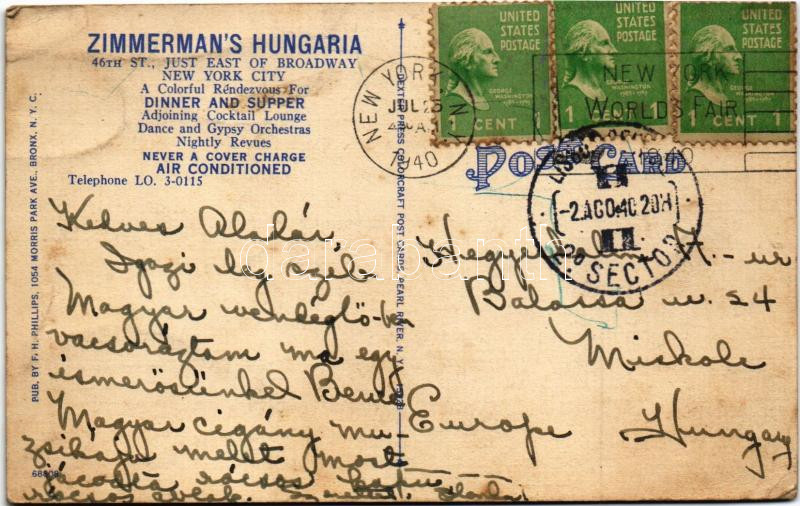 ZIMMERMAN'S HUNGARIA
46TH ST., JUST EAST OF BROADWAY
NEW YORK CITY
A Colorful Rendezvous For
DINNER AND SUPPER
Adjoining Cocktail Lounge
Dance and Gypsy Orchestras
Nightly Revues
NEVER A COVER CHARGE
AIR CONDITIONED
Telephone LO. 3-0115
PUB. BY F. H. PHILLIPS, 1054 MORRIS PARK AVE., BRONX, N. Y. C.
68808
DEXTER PRESS COLORCRAFT POST CARDS, PEARL RIVER, N. Y.
UNITED STATES POSTAGE
GEORGE WASHINGTON
1 CENT 1
UNITED STATES POSTAGE
GEORGE WASHINGTON
1 CENT 1
UNITED STATES POSTAGE
GEORGE WASHINGTON
1 CENT 1
NEW YORK, N.Y.
JUL 25
1940
NEW YORK
WORLD'S FAIR
1940
POST CARD
-2.AGO.40.20H
2º SECTOR
Kedves Aladár,
Igazi
Magyar vendéglő-ben
vacsoráztam ma egy
ismerősünkel
Magyar cigány mu-
zsikája melet most
rácsos kapu
rácsos ablak.
A. - ur
Balassa u. 24
Miskolc
Europe Hungary
darabanth.com